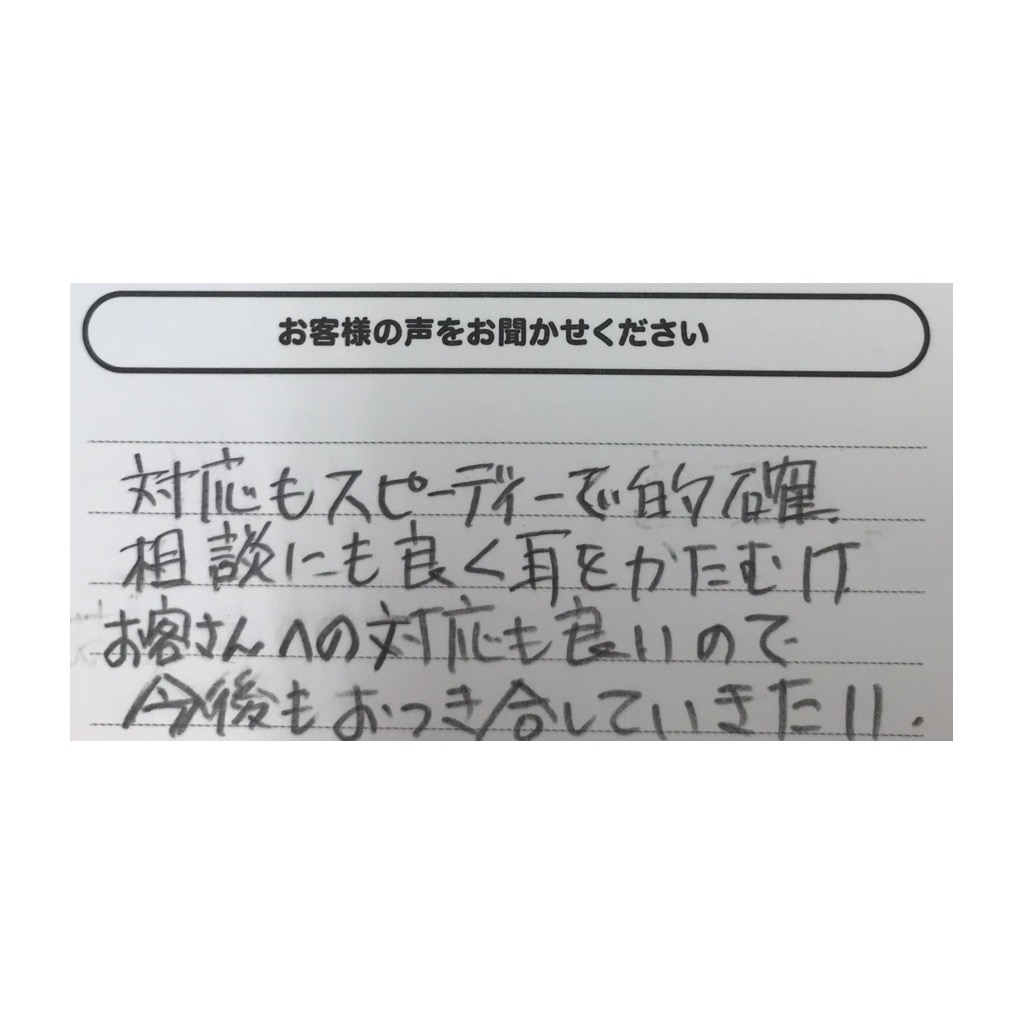 お客様の声をお聞かせください
対応もスピーディーで的確.
相談にも良く耳をかたむけ
お客さんへの対応も良いので
今後もおつき合していきたい.